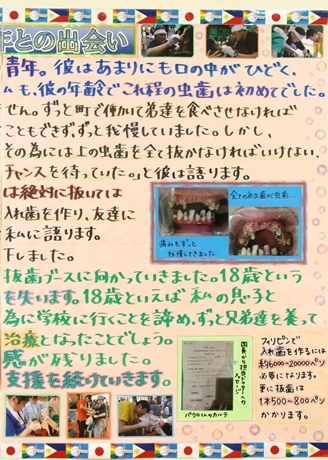 年との出会い
青年。彼はあまりにも口の中がひどく、
ムも、彼の年齢でこれ程の虫歯は初めてでした。
せん。ずっと町で働いて弟達を食べさせなければ
こともできず、ずっと我慢していました。しかし、
その為には上の虫歯を全て抜かなければいけない、
チャンスを待っていた。」と彼は語ります。
は絶対に抜いては
入れ歯を作り、友達に
私に語ります。
下しました。
全ての永久歯が虫歯…
痛みもずっと
我慢してきました
抜歯ブースに向かっていきました。18歳という
を失います。18歳といえば私の息子と
為に学校に行くことを諦め、ずっと兄弟達を養って
治療となったことでしょう。
感が残りました。
支援を続けていきます。
国長から担当ドクターへの
メッセージ
パウロくんのカルテ
フィリピンで
入れ歯を作るには
約6000~20000ペソ
必要になります。
更に抜歯は
1本500~800ペソ
かかります。